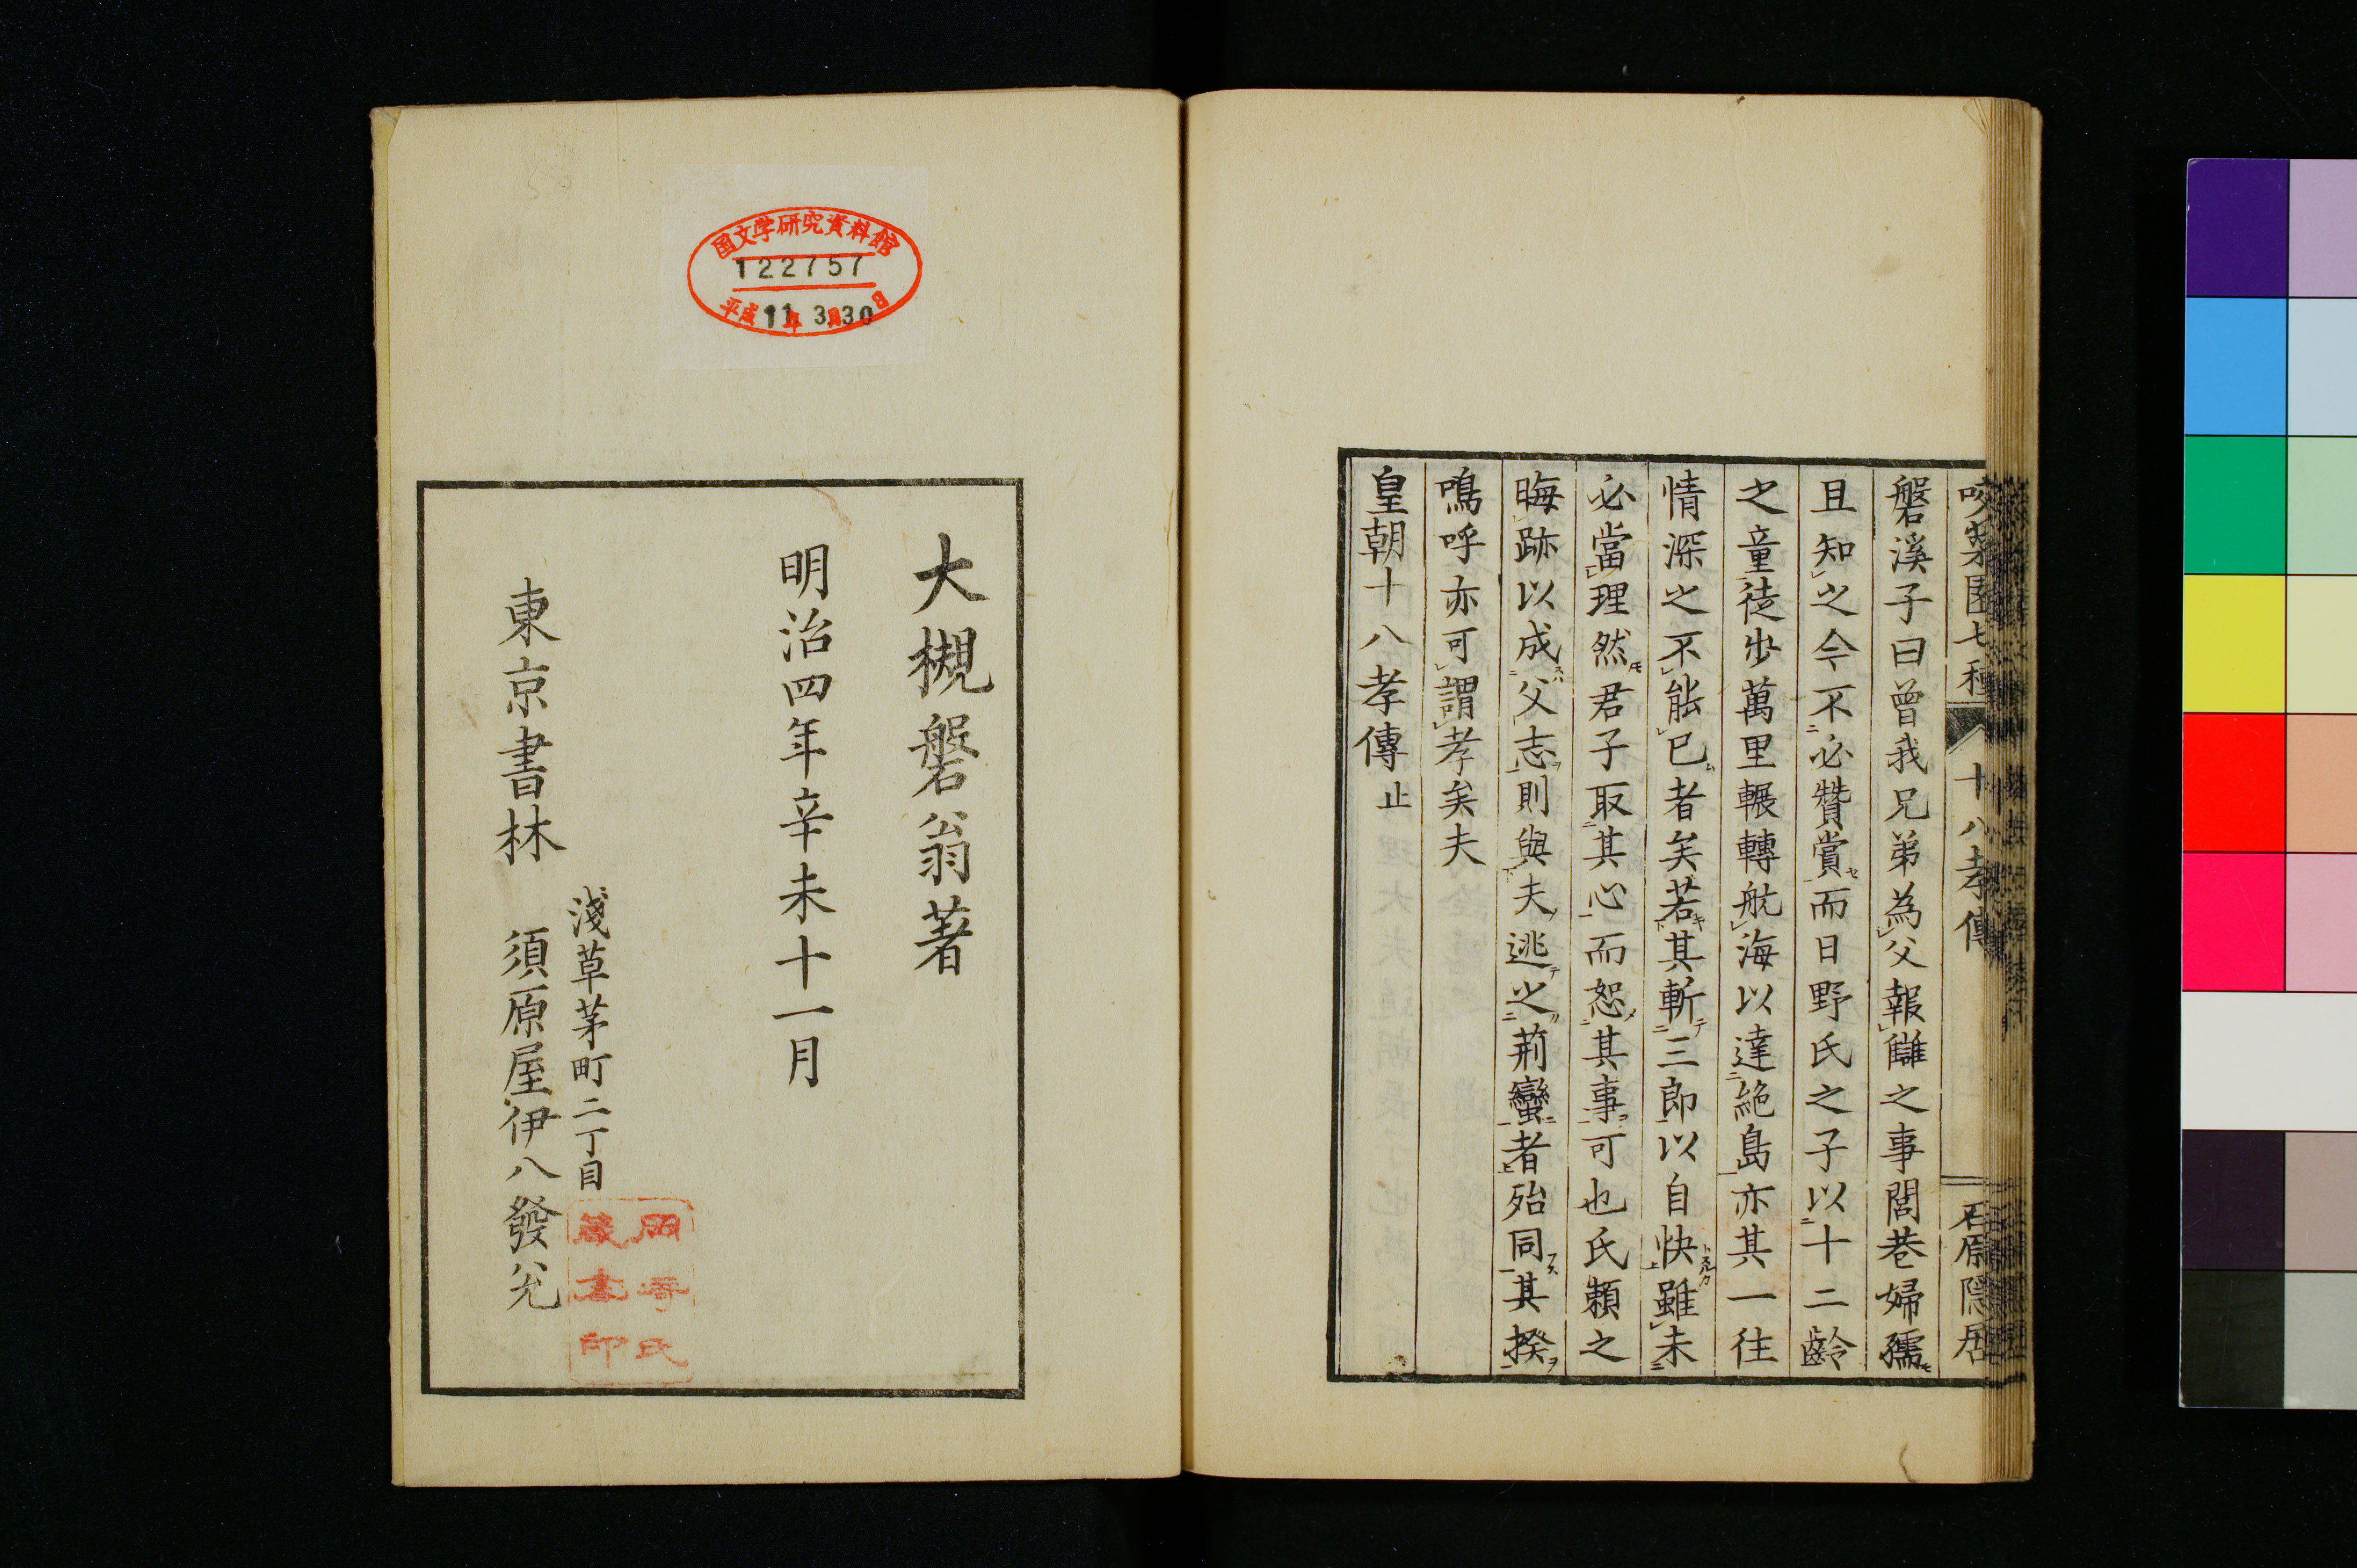 磐溪子曰曾我兄弟為父報讎之事閭巷婦孺
且知之今不必贊賞而日野氏之子以十二齡
之童徒步萬里輾轉航海以達絶島亦其一往
情深之不能已者矣若其斬三郎以自快雖未
必當理然君子取其心而恕其事可也氏頼之
晦跡以成父志則與夫逃之荊蠻者殆同其揆
嗚呼亦可謂孝矣夫
皇朝十八孝傳止
十八孝傳
石原隠居
国文学研究資料館
122757
平成11年3月30日
大槻磐翁著
明治四年辛未十一月
淺草茅町二丁目
東京書林 須原屋伊八發兌
藏書印